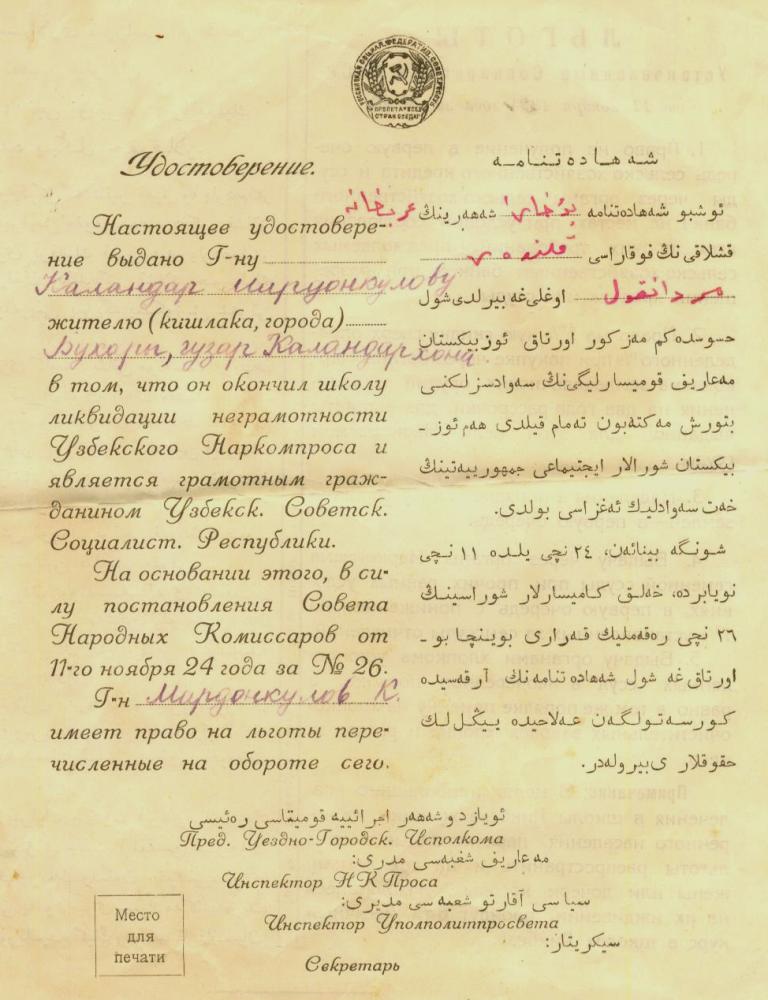 Удостоверение.
Настоящее удостовере-
ние выдано Г-ну
Каландар Мирдонкулову
жителю (кишлака, города)
Бухоры, гузар Каландархона
в том, что он окончил школу
ликвидации неграмотности
Узбекского Наркомпроса и
является грамотным граж-
данином Узбекск. Советск.
Социалист. Республики.
На основании этого, в си-
лу постановления Совета
Народных Комиссаров от
11-го ноября 24 года за № 26.
Г-н Мирдонкулов К.
имеет право на льготы пере-
численные на обороте сего.
شەهادەتنامە
ئوشبو شەهادەتنامە بوخارا شەهەرینڭ
قشلاقی نڭ فوقاراسی قلندەر
مردانقول اوغلی‌غە بیرلدی شول
حسوسدەکم مەزکور اورتاق ئوزبیکستان
مەعاریف قومیسارلیگی‌نڭ سەوادسزلکنی
بتورش مەکتەبون تەمام قیلدی هەم ئوز-
بیکستان شورالار ایجتیماعی جمهورییەتینڭ
خەت سەوادلیك ئەغزاسی بولدی.
شونگە بینائەن، ٢٤ نچی یلدە ١١ نچی
نویابردە، خەلق کامیسارلار شوراسینڭ
٢٦ نچی رەقەملیك قەراری بوینچا بو-
اورتاق‌غە شول شەهادەتنامەنڭ آرقەسیدە
کورسەتولگەن عەلاحیدە یېڭل‌لك
حقوقلار ی‌بیرولەدر.
ئویازد و شەهەر اجرائییە قومیتاسی رەئیسی
Пред. Уездно-Городск. Исполкома
مەعاریف شغبەسی مدری:
Инспектор НКПроса
سیاسی آقارتو شعبەسی مدیری:
Инспектор Уполполитпросвета
سیکریتار:
Секретарь
Место
для
печати